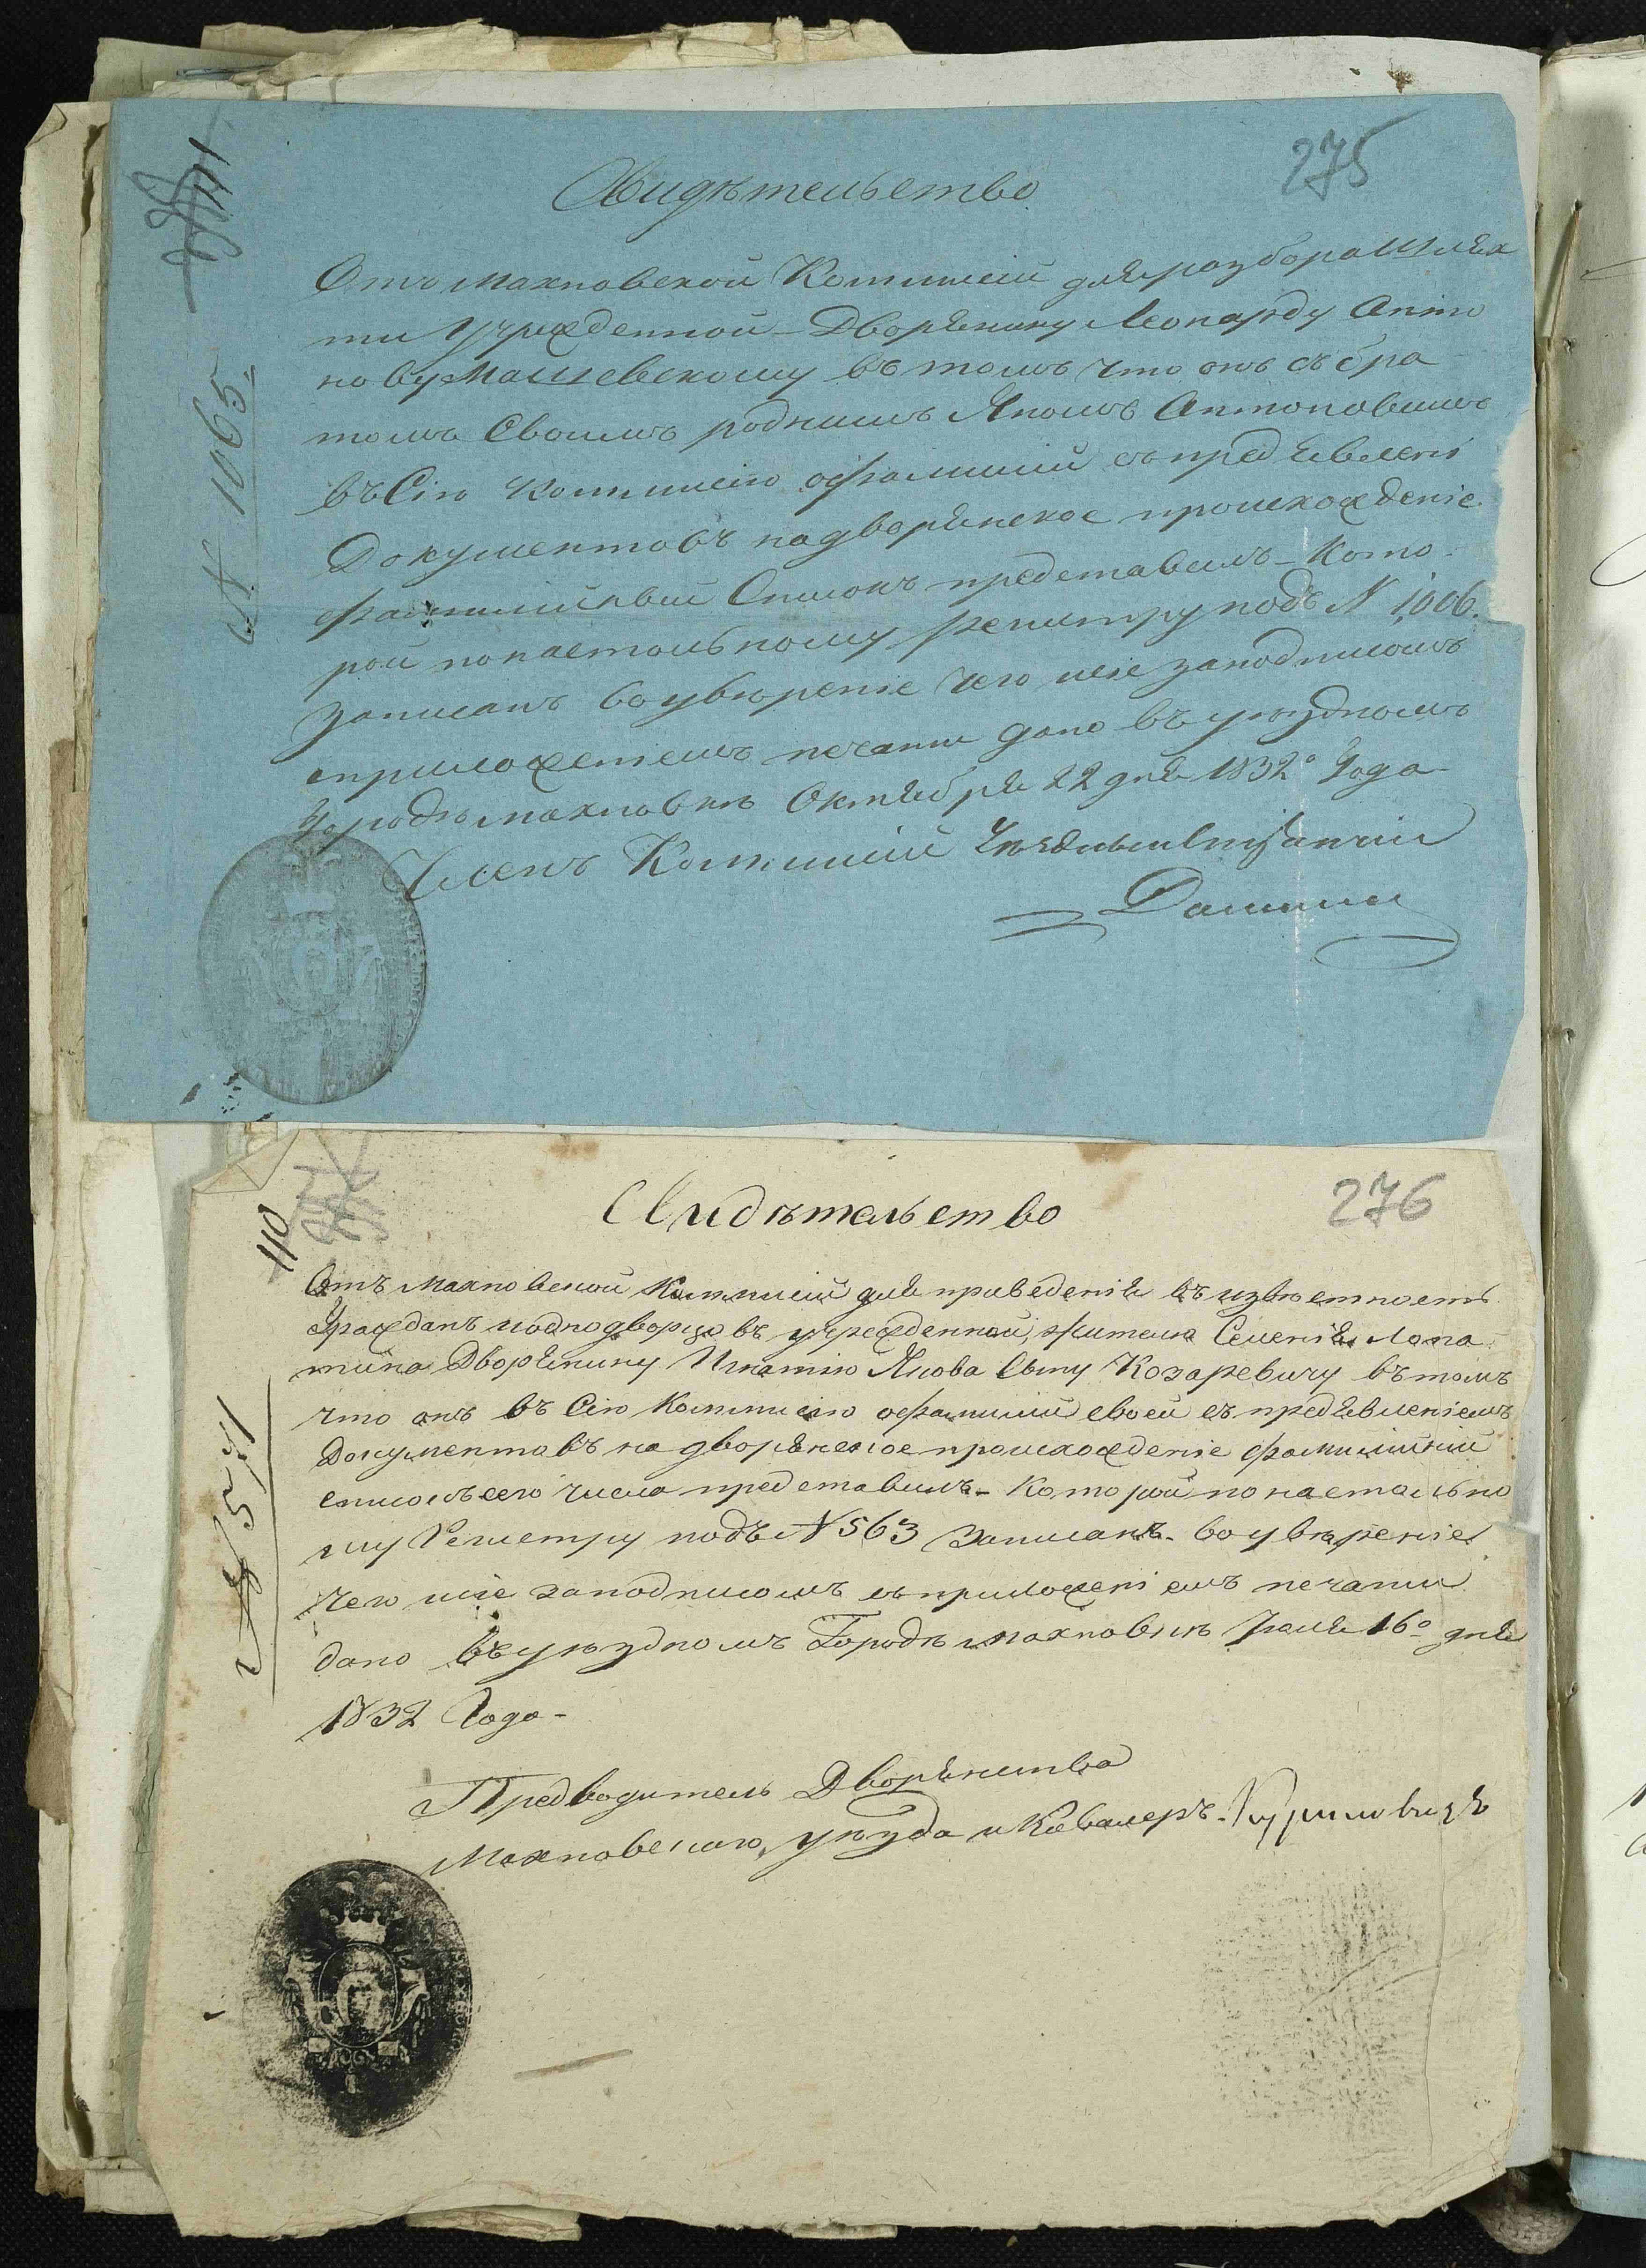 275
Свидѣтельство
N 1065.
Отъ Махновской Коммисіи для разбора Шлях
ти Учрежденной – Дворянину Леонарду Анто
нову Мошевскому въ томъ что онъ съ бра
томъ Своимъ роднимъ Яномъ Антоновимъ
въ Сію Коммисію офамиліи съ предъявлені
Документовъ на дворянское происхожденіе
фамилійный Списокъ представилъ – Кото
рой по настольному регистру подъ N 1,006.
записанъ во увѣреніе чего сіе заподписомъ
сприложеніемъ печати дано въ уѣздномъ
Городѣ Махновкѣ Октября 22 дня 1832º Года
Членъ Коммисіи
276
110
Свидѣтельство
N 571
Отъ Махновской Коммисіи для приведенія въ извѣстность
Гражданъ иоднодворцовъ учрежденной, жителю Селенія Лопа
тина Дворянину Игнатію Якова Сыну Козаревичу въ томъ
что онъ въ Сію Коммисію офамиліи своей съ предъявленіемъ
Документовъ на дворянское происхожденіе фамилійній
списокъ сего числа представилъ – Которой по настольно
му Регистру подъ N 563 Записанъ – во увѣреніе
чего сіе заподписомъ съ приложеніемъ печати
дано въ уѣздномъ Городѣ Махновкѣ 16º дня
1832 Года –
Предводитель Дворянства
Махновскаго уѣзда и Кавалеръ